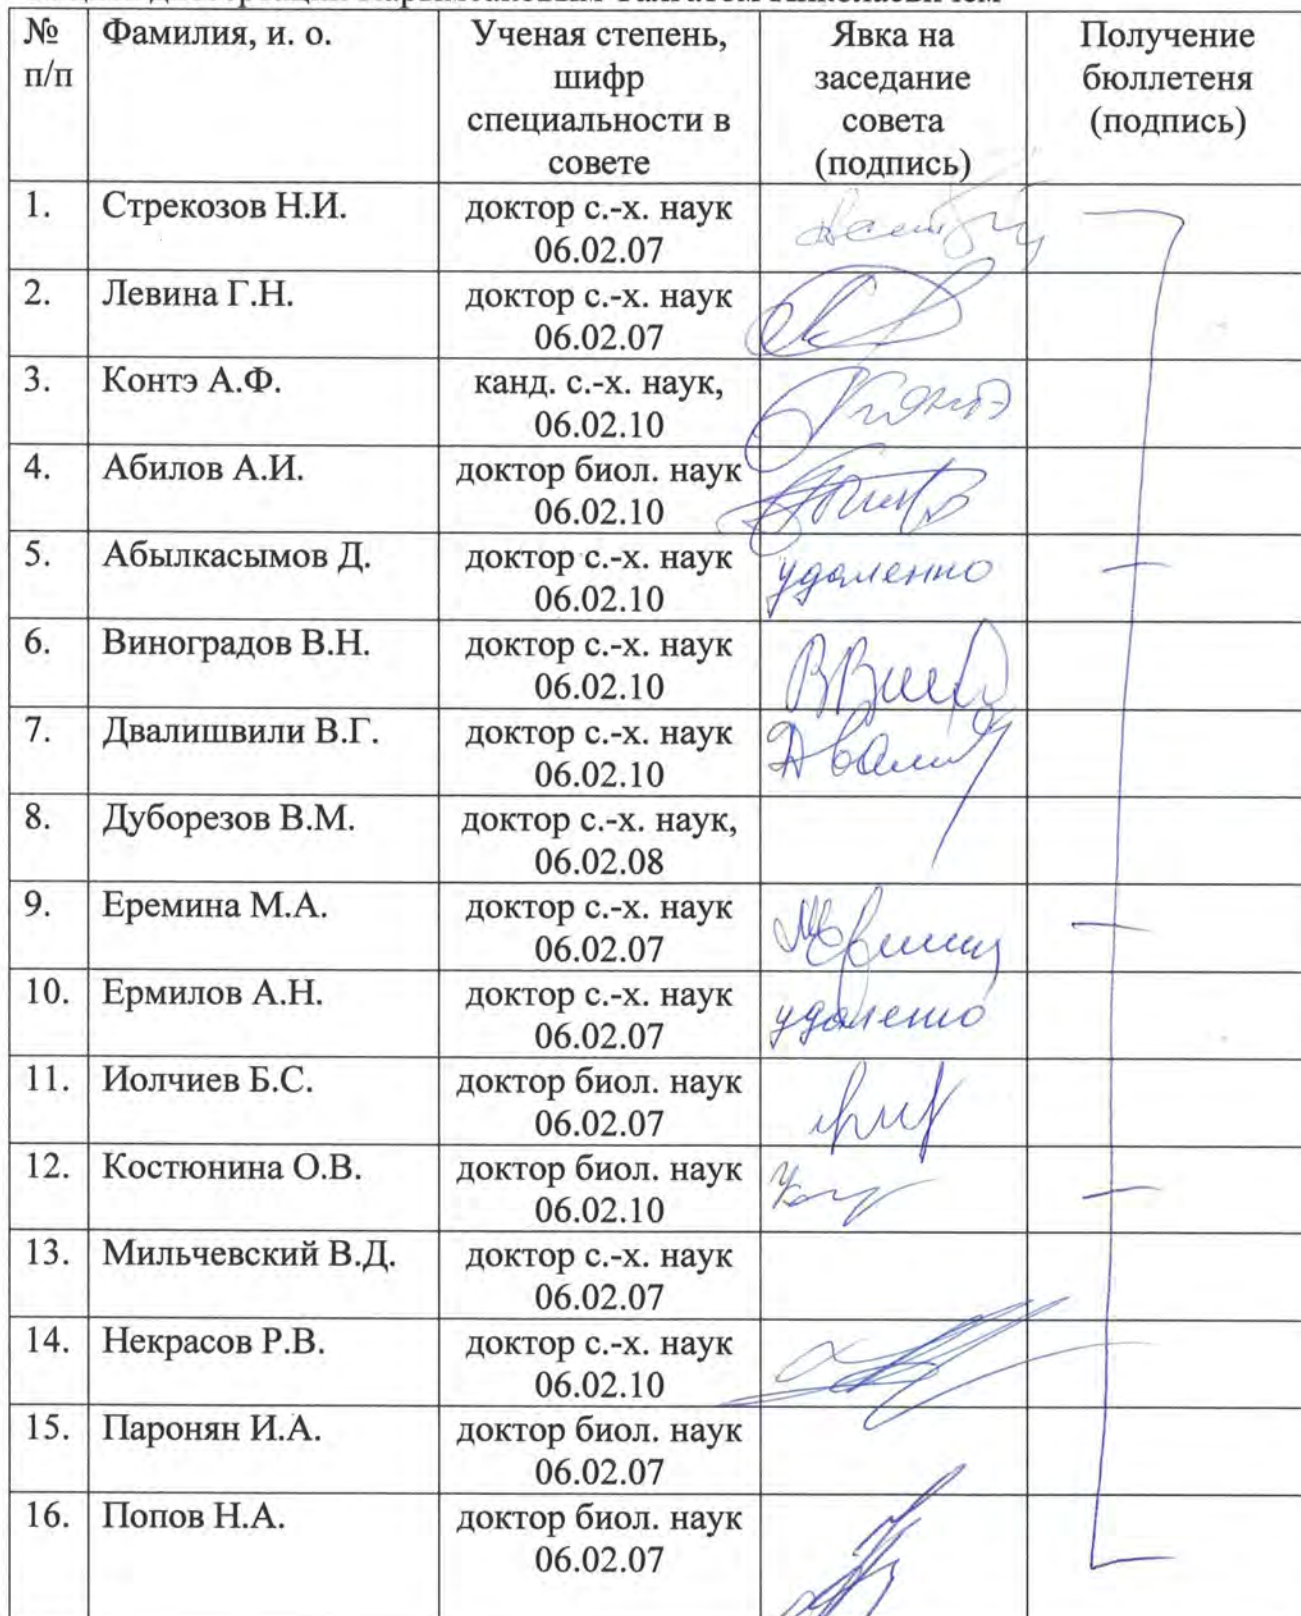 № Фамилия, и. о. Ученая степень, Явка на Получение
п/п шифр заседание бюллетеня
специальности в совета (подпись)
совете (подпись)
1. Стрекозов Н.И. доктор с.-х. наук
06.02.07
2. Левина Г.Н. доктор с.-х. наук
06.02.07
3. Контэ А.Ф. канд. с.-х. наук, Контэ
06.02.10
4. Абилов А.И. доктор биол. наук
06.02.10
5. Абылкасымов Д. доктор с.-х. наук удаленно
06.02.10
6. Виноградов В.Н. доктор с.-х. наук
06.02.10
7. Двалишвили В.Г. доктор с.-х. наук
06.02.10
8. Дуборезов В.М. доктор с.-х. наук,
06.02.08
9. Еремина М.А. доктор с.-х. наук
06.02.07
10. Ермилов А.Н. доктор с.-х. наук удаленно
06.02.07
11. Иолчиев Б.С. доктор биол. наук
06.02.07
12. Костюнина О.В. доктор биол. наук
06.02.10
13. Мильчевский В.Д. доктор с.-х. наук
06.02.07
14. Некрасов Р.В. доктор с.-х. наук
06.02.10
15. Паронян И.А. доктор биол. наук
06.02.07
16. Попов Н.А. доктор биол. наук
06.02.07